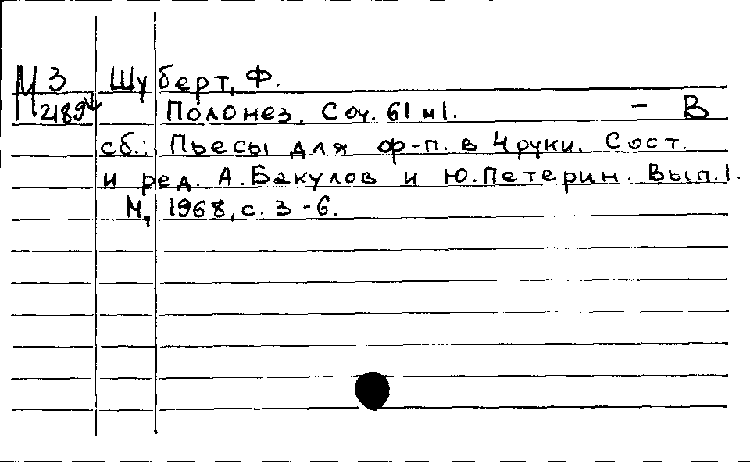 М 3 Шуберт, Ф.
П 2189 Полонез. Соч. 61 №1. - В
сб.: Пьесы для ф-п. в 4 руки. Сост.
и ред. А. Бакулов и Ю. Петерин. Вып. 1.
М, 1968, с. 3-6.